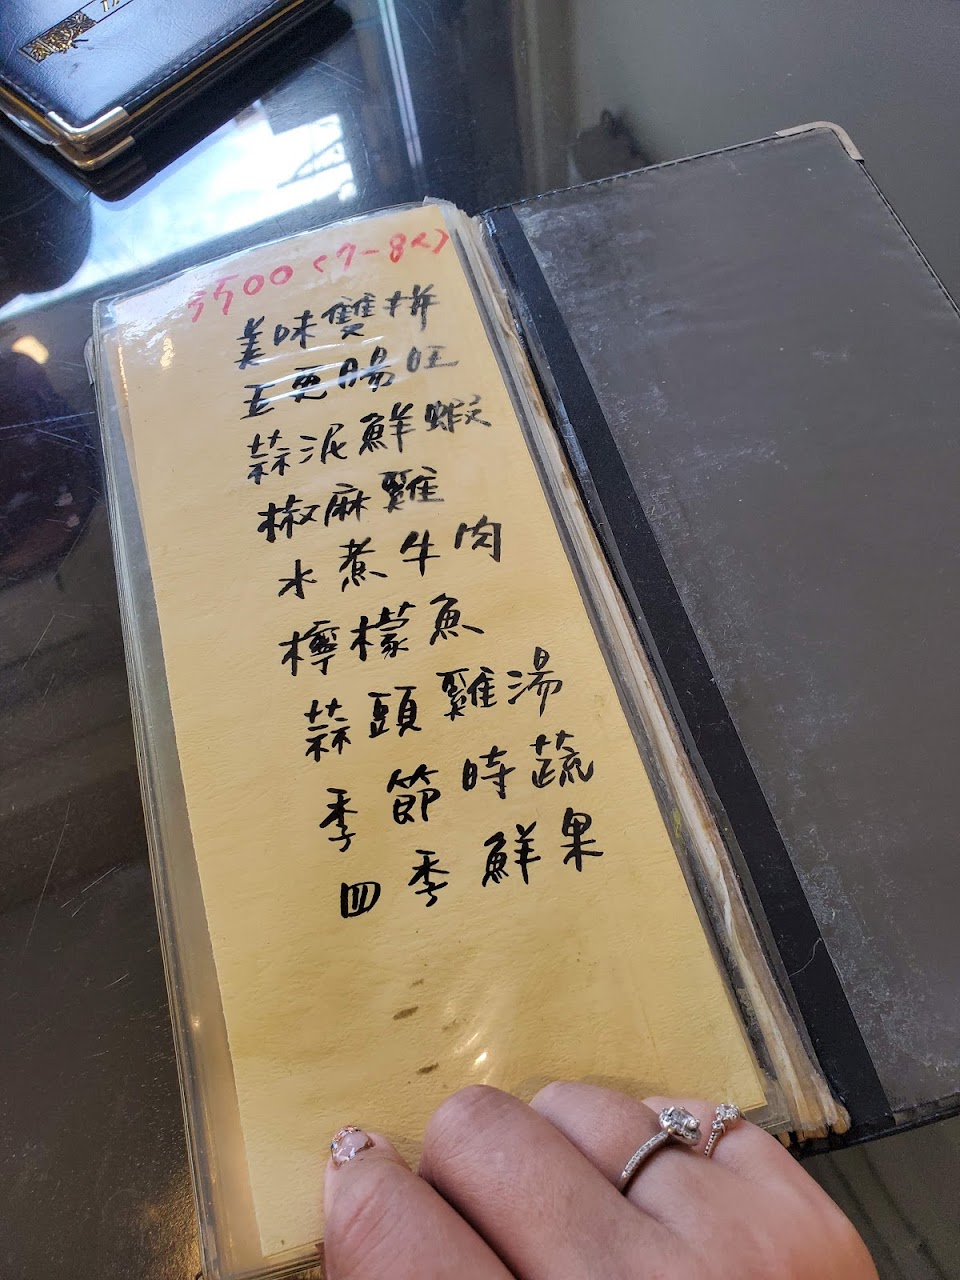 5500<7-8人>
美味雙拼
五更腸旺
蒜泥鮮蝦
椒麻雞
水煮牛肉
檸檬魚
蒜頭雞湯
季節時蔬
四季鮮果